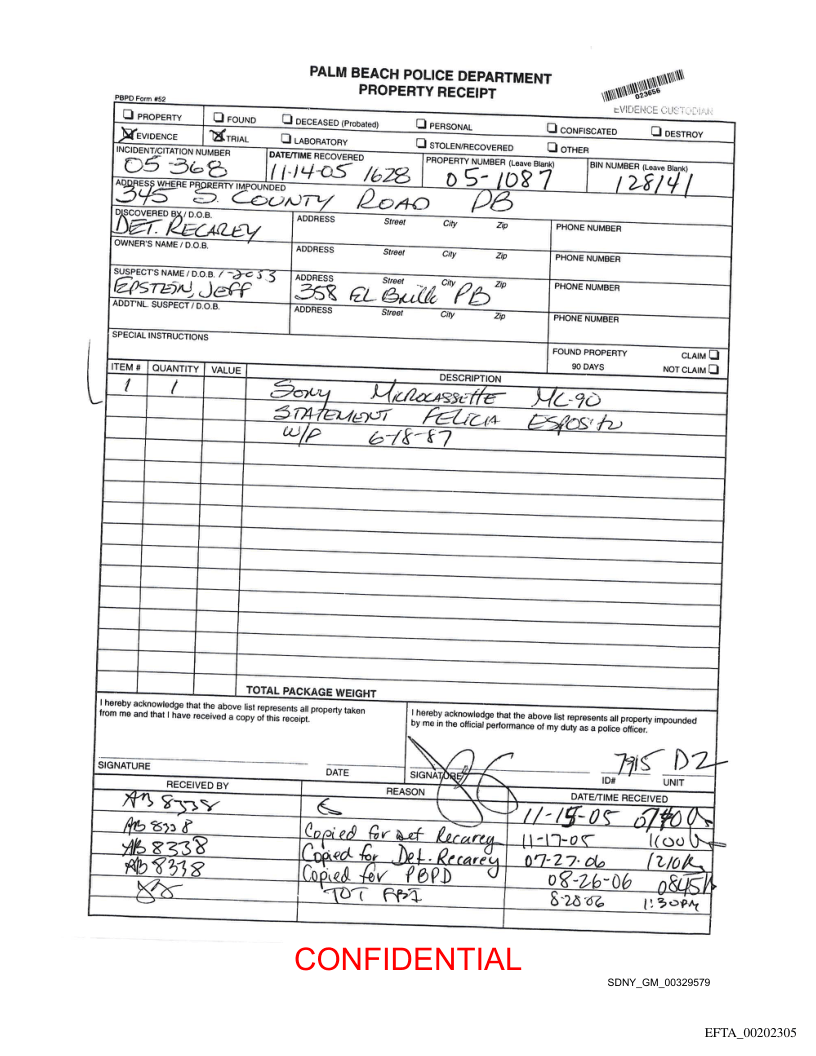 PALM BEACH POLICE DEPARTMENT
PROPERTY RECEIPT
PBPD Form #52
023656
EVIDENCE CUSTODIAN
PROPERTY FOUND DECEASED (Probated) PERSONAL CONFISCATED DESTROY
EVIDENCE TRIAL LABORATORY STOLEN/RECOVERED OTHER
INCIDENT/CITATION NUMBER DATE/TIME RECOVERED PROPERTY NUMBER (Leave Blank) BIN NUMBER (Leave Blank)
05-368 11-14-05 1628 05-1087 128141
ADDRESS WHERE PROPERTY IMPOUNDED
345 S. COUNTY ROAD PB
DISCOVERED BY / D.O.B. ADDRESS Street City Zip PHONE NUMBER
DET. RECAREY
OWNER'S NAME / D.O.B. ADDRESS Street City Zip PHONE NUMBER
SUSPECT'S NAME / D.O.B. ADDRESS Street City Zip PHONE NUMBER
EPSTEIN, JEFF 358 EL Brillo PB
ADDT'NL. SUSPECT / D.O.B. ADDRESS Street City Zip PHONE NUMBER
SPECIAL INSTRUCTIONS
FOUND PROPERTY CLAIM
90 DAYS NOT CLAIM
ITEM # QUANTITY VALUE DESCRIPTION
1 1 Sony MICROCASSETTE MC-90
STATEMENT FELICIA ESPOSITO
W/P 6-18-87
TOTAL PACKAGE WEIGHT
I hereby acknowledge that the above list represents all property taken
from me and that I have received a copy of this receipt.
I hereby acknowledge that the above list represents all property impounded
by me in the official performance of my duty as a police officer.
7915 D2
SIGNATURE DATE SIGNATURE ID# UNIT
RECEIVED BY REASON DATE/TIME RECEIVED
AB 8338 11-15-05
AB 8338 Copied for Det Recarey 11-17-05 1100
AB 8338 Copied for Det. Recarey 07-27-06 1210
AB 8338 Copied for PBPD 08-26-06 0845
TOT FBI 8-28-06 1:30PM
CONFIDENTIAL
SDNY_GM_00329579
EFTA_00202305